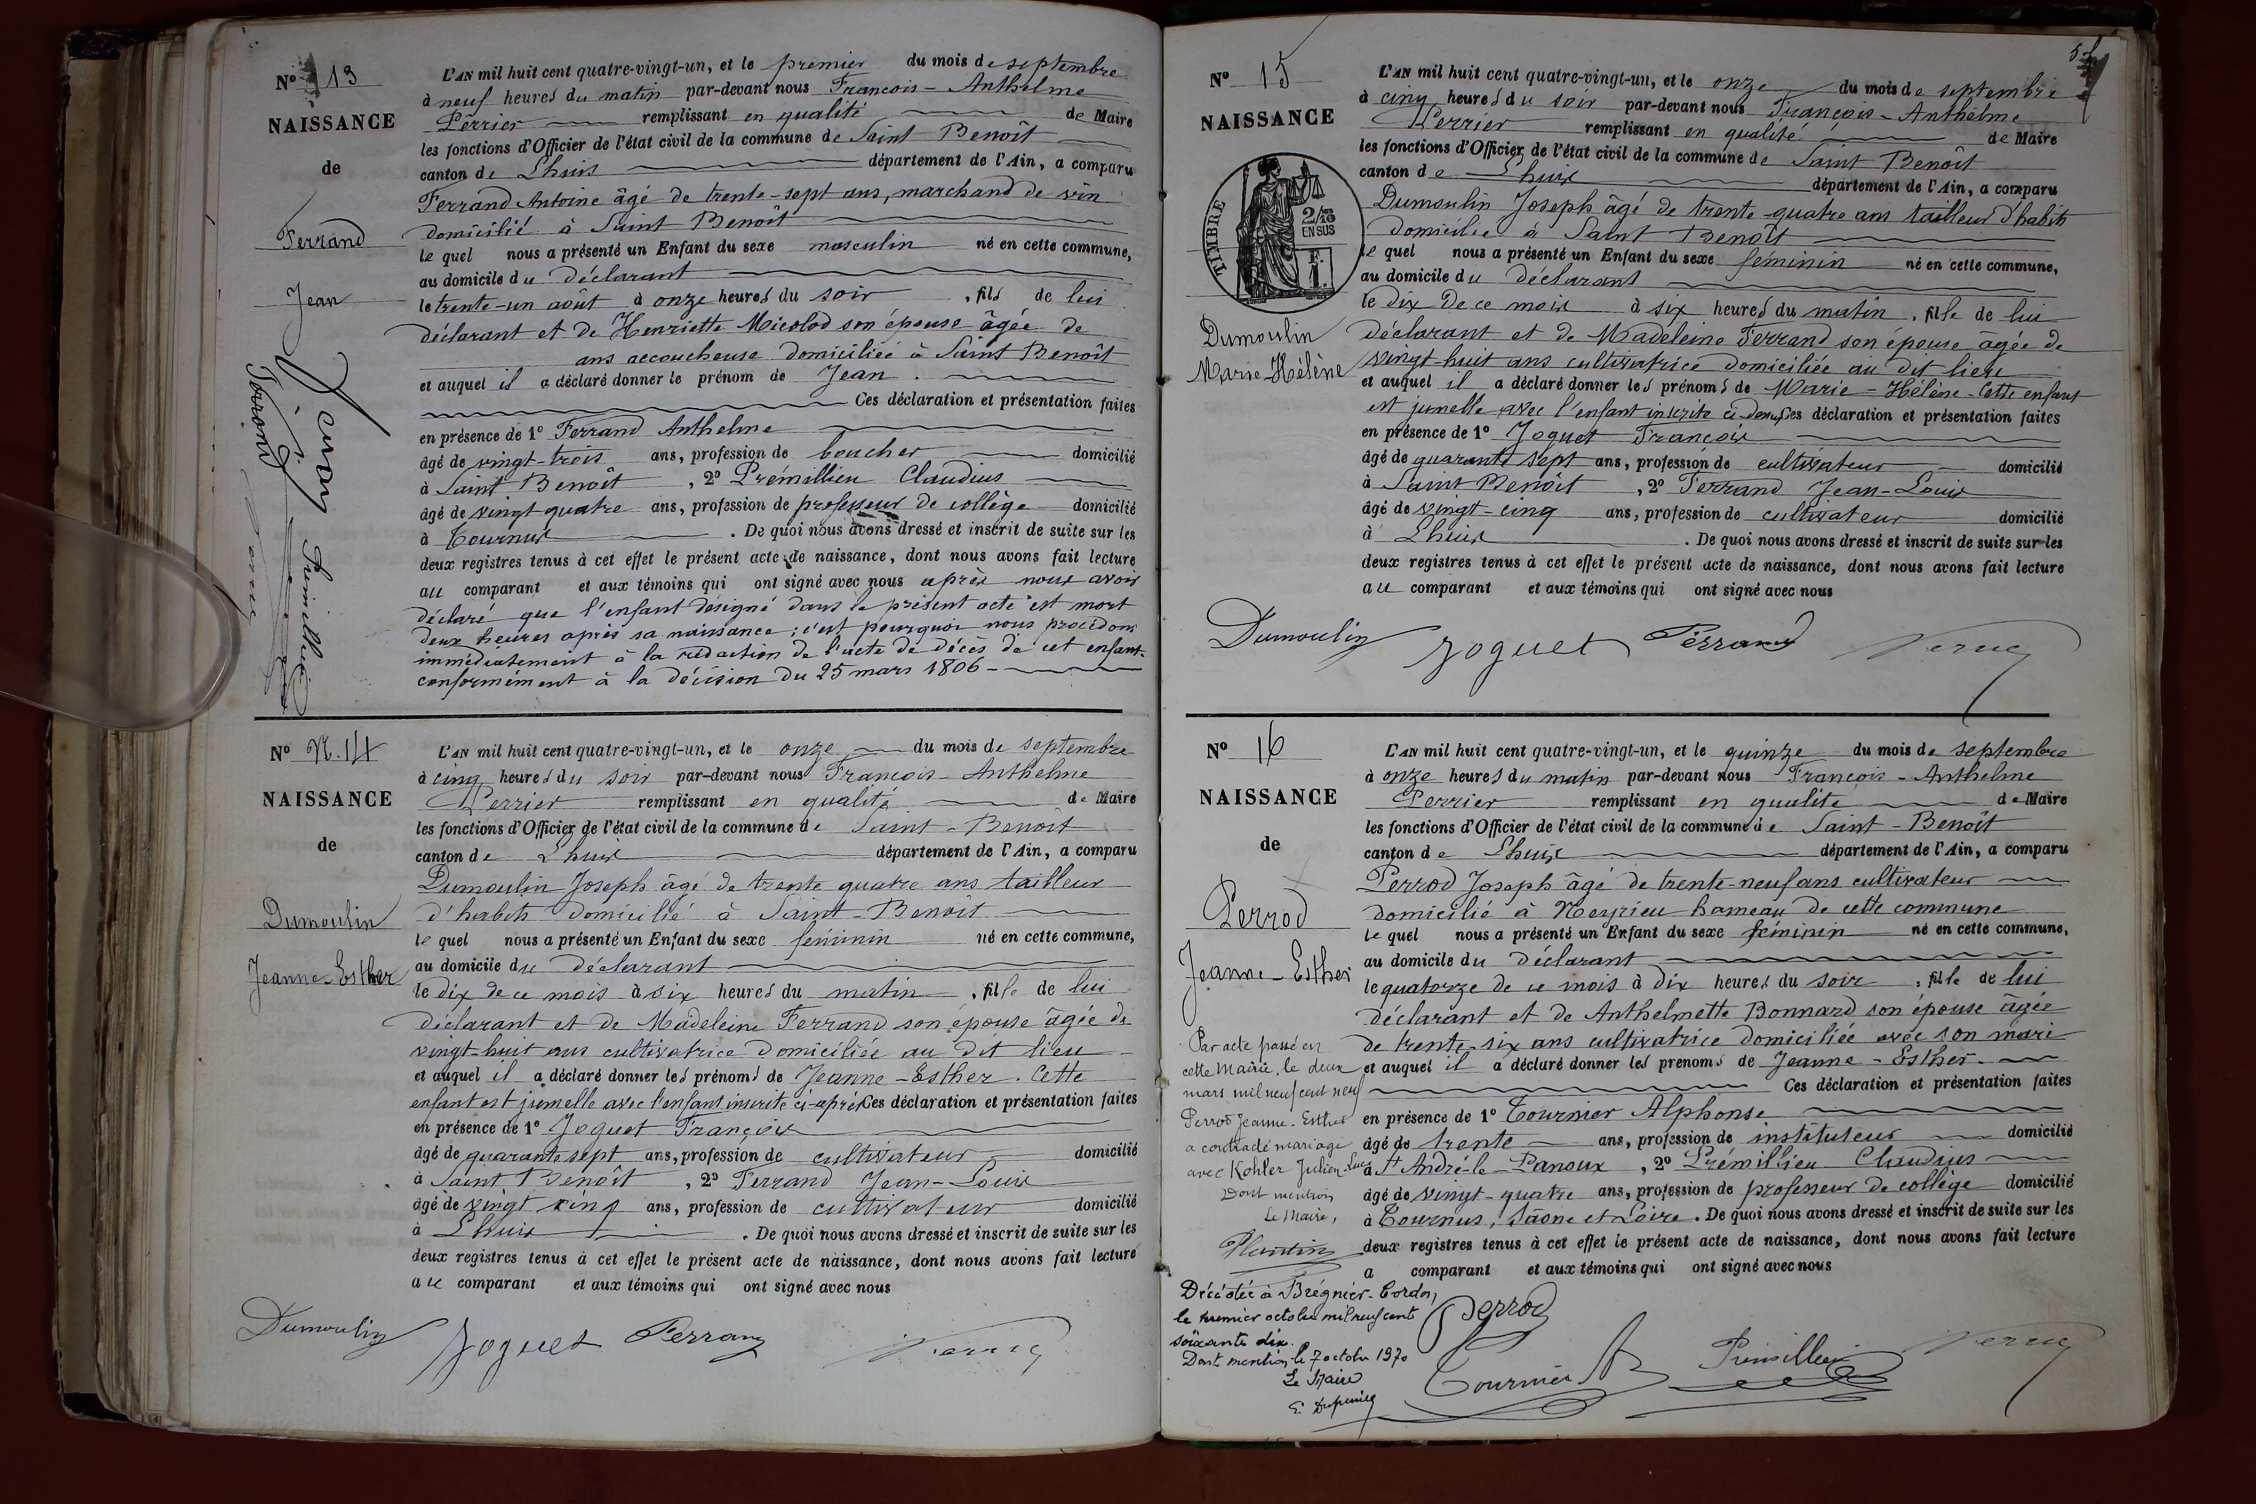 N° 13
NAISSANCE
de
Ferrand
Jean
L'AN mil huit cent quatre-vingt-un, et le premier du mois de septembre
à neuf heures du matin par-devant nous François - Anthelme
Perrier remplissant en qualité de Maire
les fonctions d'Officier de l'état civil de la commune de Saint Benoît
canton de Lhuis département de l'Ain, a comparu
Ferrand Antoine âgé de trente-sept ans, marchand de vin
domicilié à Saint Benoît
le quel nous a présenté un Enfant du sexe masculin né en cette commune,
au domicile du déclarant
le trente-un août à onze heures du soir, fils de lui
déclarant et de Henriette Micolod son épouse âgée de
ans accoucheuse domiciliée à Saint Benoît
et auquel il a déclaré donner le prénom de Jean.
Ces déclaration et présentation faites
en présence de 1° Ferrand Anthelme
âgé de vingt-trois ans, profession de boucher domicilié
à Saint Benoît, 2° Prémillieu Claudius
âgé de vingt quatre ans, profession de professeur de collège domicilié
à Tournus. De quoi nous avons dressé et inscrit de suite sur les
deux registres tenus à cet effet le présent acte de naissance, dont nous avons fait lecture
au comparant et aux témoins qui ont signé avec nous après nous avoir
déclaré que l'enfant désigné dans le présent acte est mort
deux heures après sa naissance; c'est pourquoi nous procédons
immédiatement à la rédaction de l'acte de décès de cet enfant.
conformément à la décision du 25 mars 1806 -
Ferrand
Prémillieu
N° N. 14
NAISSANCE
de
Dumoulin
Jeanne-Esther
L'AN mil huit cent quatre-vingt-un, et le onze du mois de septembre
à cinq heures du soir par-devant nous François - Anthelme
Perrier remplissant en qualité de Maire
les fonctions d'Officier de l'état civil de la commune de Saint - Benoît
canton de Lhuis département de l'Ain, a comparu
Dumoulin Joseph âgé de trente quatre ans tailleur
d'habits domicilié à Saint - Benoît
le quel nous a présenté un Enfant du sexe féminin né en cette commune,
au domicile du déclarant
le dix de ce mois à six heures du matin, fille de lui
déclarant et de Madeleine Ferrand son épouse âgée de
vingt-huit ans cultivatrice domiciliée au dit lieu
et auquel il a déclaré donner les prénoms de Jeanne - Esther. Cette
enfant est jumelle avec l'enfant inscrite ci-après Ces déclaration et présentation faites
en présence de 1° Joguet François
âgé de quarante sept ans, profession de cultivateur domicilié
à Saint Benoît, 2° Ferrand Jean-Louis
âgé de vingt cinq ans, profession de cultivateur domicilié
à Lhuis. De quoi nous avons dressé et inscrit de suite sur les
deux registres tenus à cet effet le présent acte de naissance, dont nous avons fait lecture
au comparant et aux témoins qui ont signé avec nous
Dumoulin Joguet Ferrand
N° 15
NAISSANCE
TIMBRE
2/10
EN SUS
Dumoulin
Marie-Hélène
L'AN mil huit cent quatre-vingt-un, et le onze du mois de septembre
à cinq heures du soir par-devant nous François - Anthelme
Perrier remplissant en qualité de Maire
les fonctions d'Officier de l'état civil de la commune de Saint Benoît
canton de Lhuis département de l'Ain, a comparu
Dumoulin Joseph âgé de trente-quatre ans tailleur d'habits
domicilié à Saint Benoît
le quel nous a présenté un Enfant du sexe féminin né en cette commune,
au domicile du déclarant
le dix de ce mois à six heures du matin, fille de lui
déclarant et de Madeleine Ferrand son épouse âgée de
vingt-huit ans cultivatrice domiciliée au dit lieu
et auquel il a déclaré donner les prénoms de Marie - Hélène. Cette enfant
est jumelle avec l'enfant inscrite ci-dessus Ces déclaration et présentation faites
en présence de 1° Joguet François
âgé de quarante sept ans, profession de cultivateur domicilié
à Saint Benoît, 2° Ferrand Jean-Louis
âgé de vingt-cinq ans, profession de cultivateur domicilié
à Lhuis. De quoi nous avons dressé et inscrit de suite sur les
deux registres tenus à cet effet le présent acte de naissance, dont nous avons fait lecture
au comparant et aux témoins qui ont signé avec nous
Dumoulin Joguet Ferrand
N° 16
NAISSANCE
de
Perrod
Jeanne - Esther
Par acte passé en
cette Mairie, le deux
mars mil neuf cent neuf
Perrod Jeanne-Esther
a contracté mariage
avec Kohler Julien Luc
Dont mention
Le Maire,
Décédée à Brégnier-Cordon
le premier octobre mil neuf cent
soixante dix.
Dont mention le 7 octobre 1970
Le Maire
L'AN mil huit cent quatre-vingt-un, et le quinze du mois de septembre
à onze heures du matin par-devant nous François - Anthelme
Perrier remplissant en qualité de Maire
les fonctions d'Officier de l'état civil de la commune de Saint - Benoît
canton de Lhuis département de l'Ain, a comparu
Perrod Joseph âgé de trente-neuf ans cultivateur
domicilié à Neyrieu hameau de cette commune
le quel nous a présenté un Enfant du sexe féminin né en cette commune,
au domicile du déclarant
le quatorze de ce mois à dix heures du soir, fille de lui
déclarant et de Anthelmette Bonnard son épouse âgée
de trente-six ans cultivatrice domiciliée avec son mari
et auquel il a déclaré donner les prénoms de Jeanne - Esther.
Ces déclaration et présentation faites
en présence de 1° Tournier Alphonse
âgé de trente ans, profession de instituteur domicilié
à St André-le-Panoux, 2° Prémillieu Claudius
âgé de vingt-quatre ans, profession de professeur de collège domicilié
à Tournus, Saône et Loire. De quoi nous avons dressé et inscrit de suite sur les
deux registres tenus à cet effet le présent acte de naissance, dont nous avons fait lecture
a comparant et aux témoins qui ont signé avec nous
Perrod
Tournier A Prémillieu